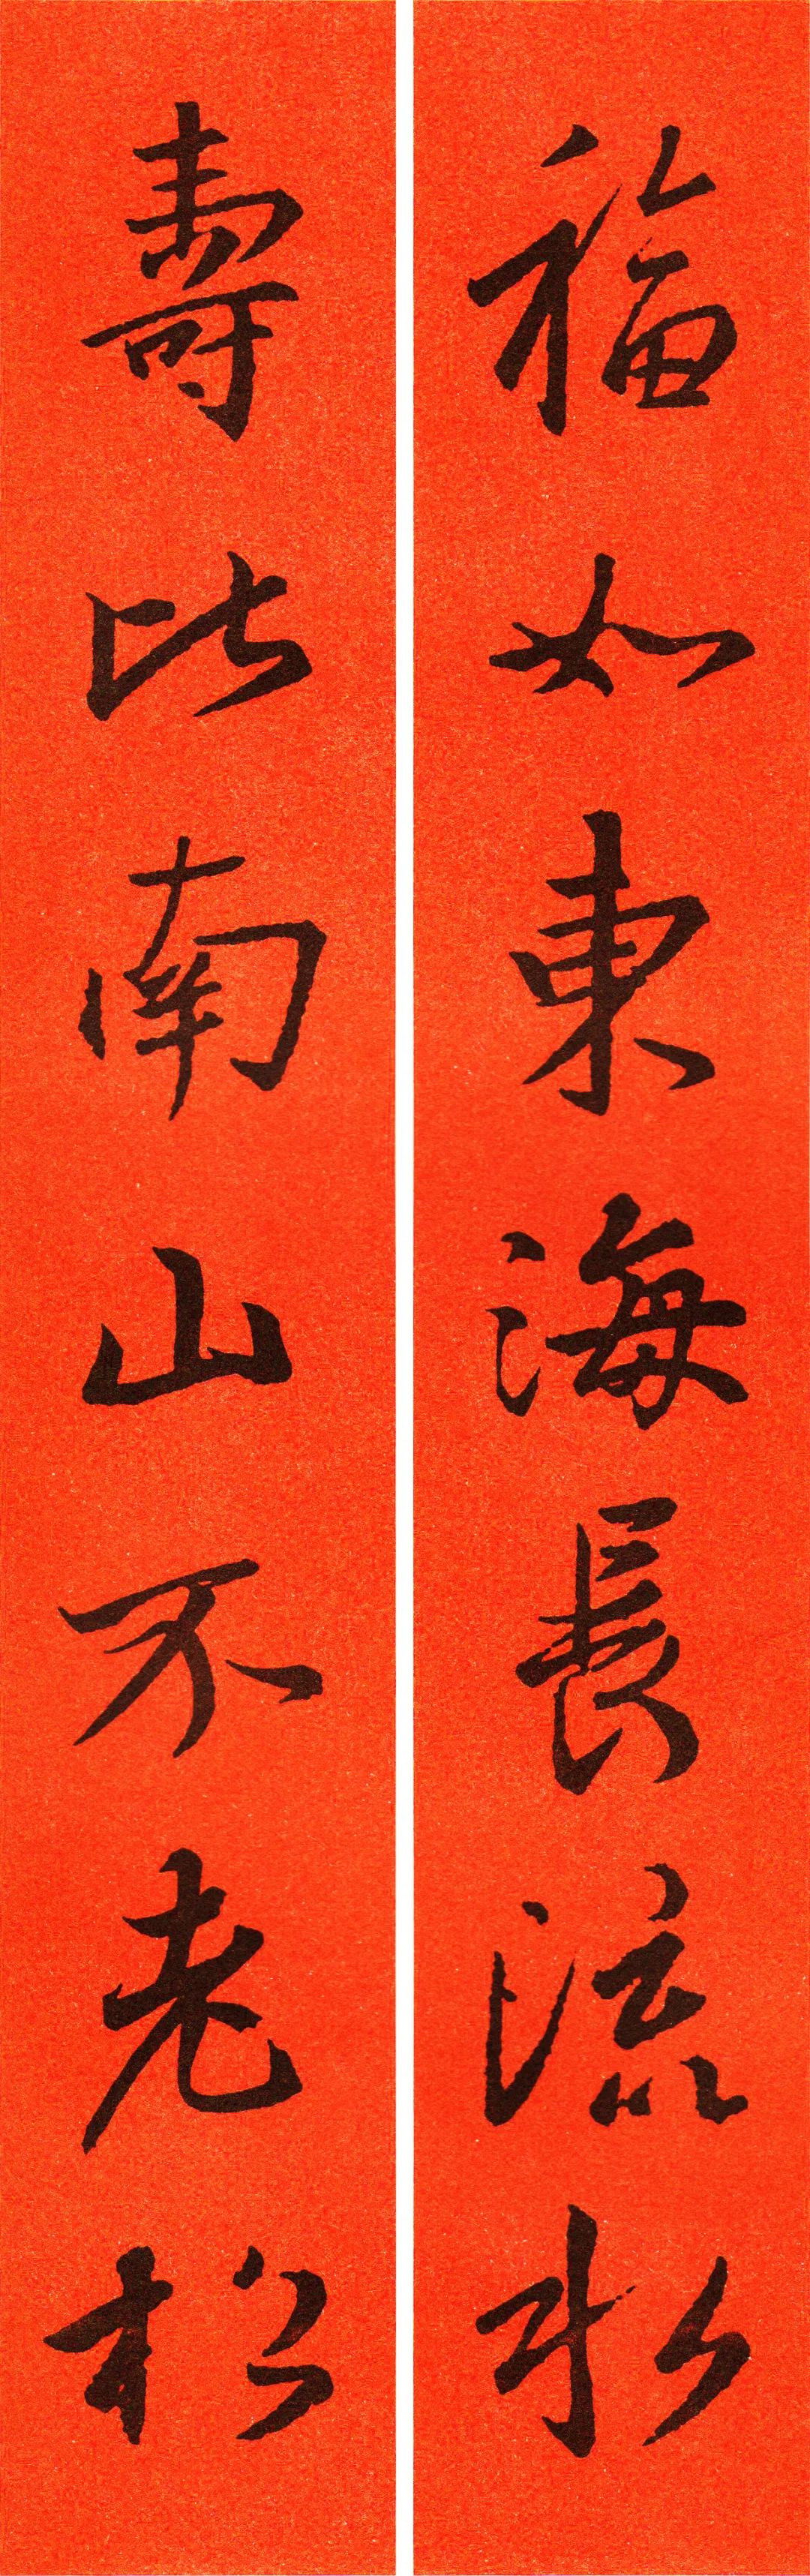 福如東海長流水
壽比南山不老松